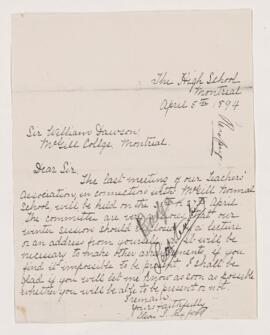 The High School
Montreal
April 5th 1894
Sir William Dawson,
McGill College, Montreal.
Dear Sir,
The last meeting of our Teachers'
Association, in connection with McGill Normal
School, will be held on the of April
The committee are very that our
winter session should close a lecture
or an address from yourself it will be
necessary to make other arrangements, if you
find it impossible to be present I shall be
glad if you will let me know as soon as possible
whether you will be able to be present or not
I remain
Yours faithfully